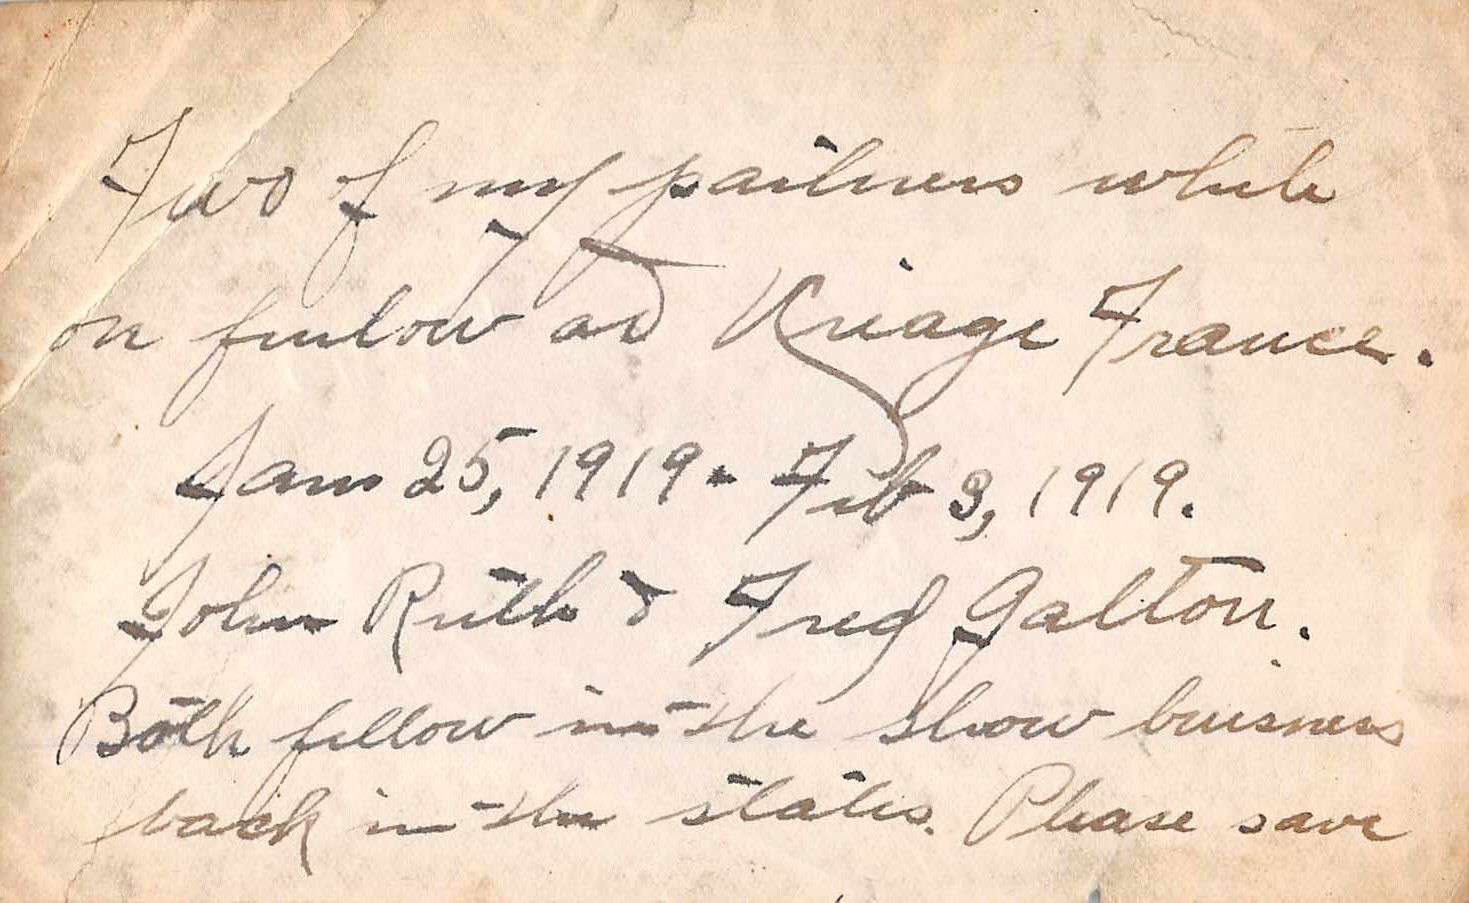 Two of my partners while
on furlow at Uriage France.
Jan 25, 1919 - Feb 3, 1919.
John Ruth & Fred Galton.
Both fellow in the show buisness
back in the states. Please save